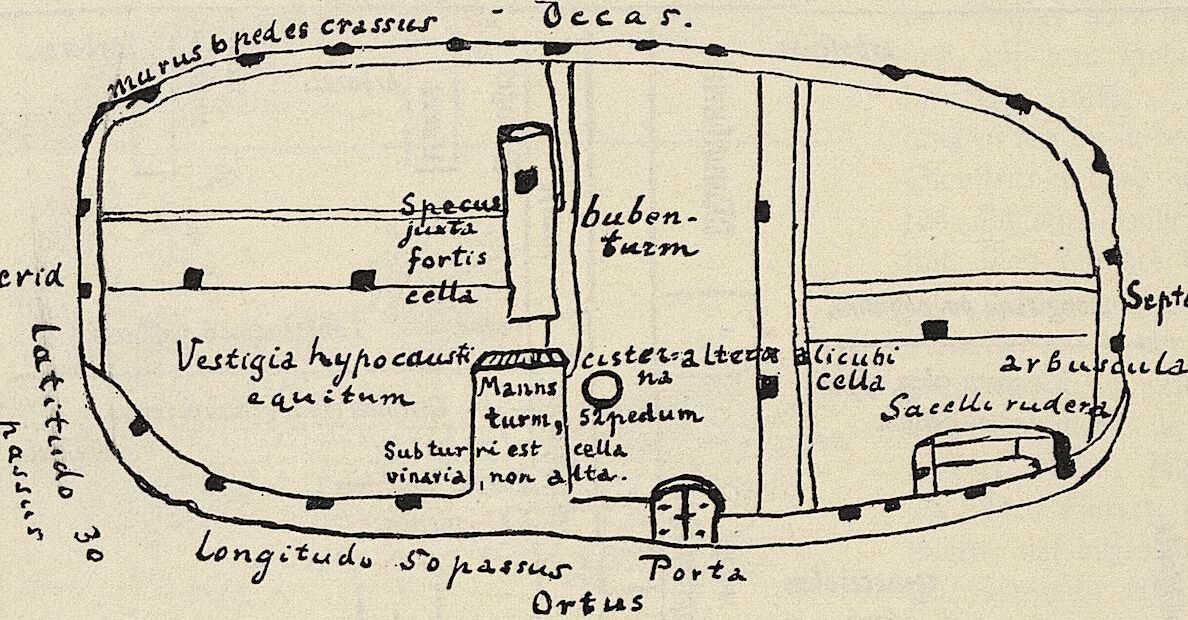 Occas.
murus 6 pedes crassus
Specus
juxta
fortis
cella
buben-
turm
erid
Septe
Latitudo 30
passus
Vestigia hypocausti
equitum
Manns
turm,
cister=
na
52 pedum
altera alicubi
cella
arbuscula
Sacelli rudera
Sub turri est cella
vinaria, non alta.
Longitudo 50 passus
Porta
Ortus